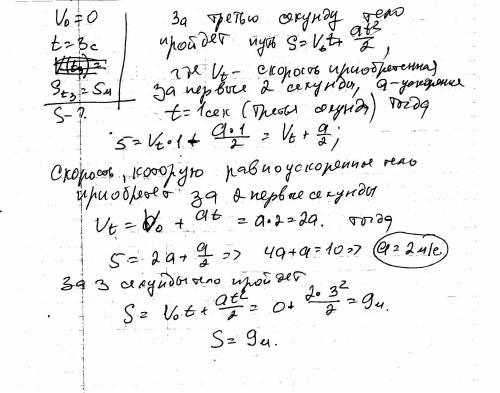 V₀ = 0
t = 3с
S_t₃ = 5м
S - ?
За третью секунду тело
пройдет путь S = V_t t + at²/2,
где V_t - скорость приобретенная
за первые 2 секунды, a - ускорение
t = 1сек (третья секунда) тогда
5 = V_t · 1 + a·1/2 = V_t + a/2;
Скорость, которую равноускоренные тело
приобретет за 2 первые секунды
V_t = V₀ + at = a·2 = 2a. тогда
5 = 2a + a/2 => 4a + a = 10 => a = 2м/с
За 3 секунды тело пройдет
S = V₀t + at²/2 = 0 + 2·3²/2 = 9м.
S = 9м.